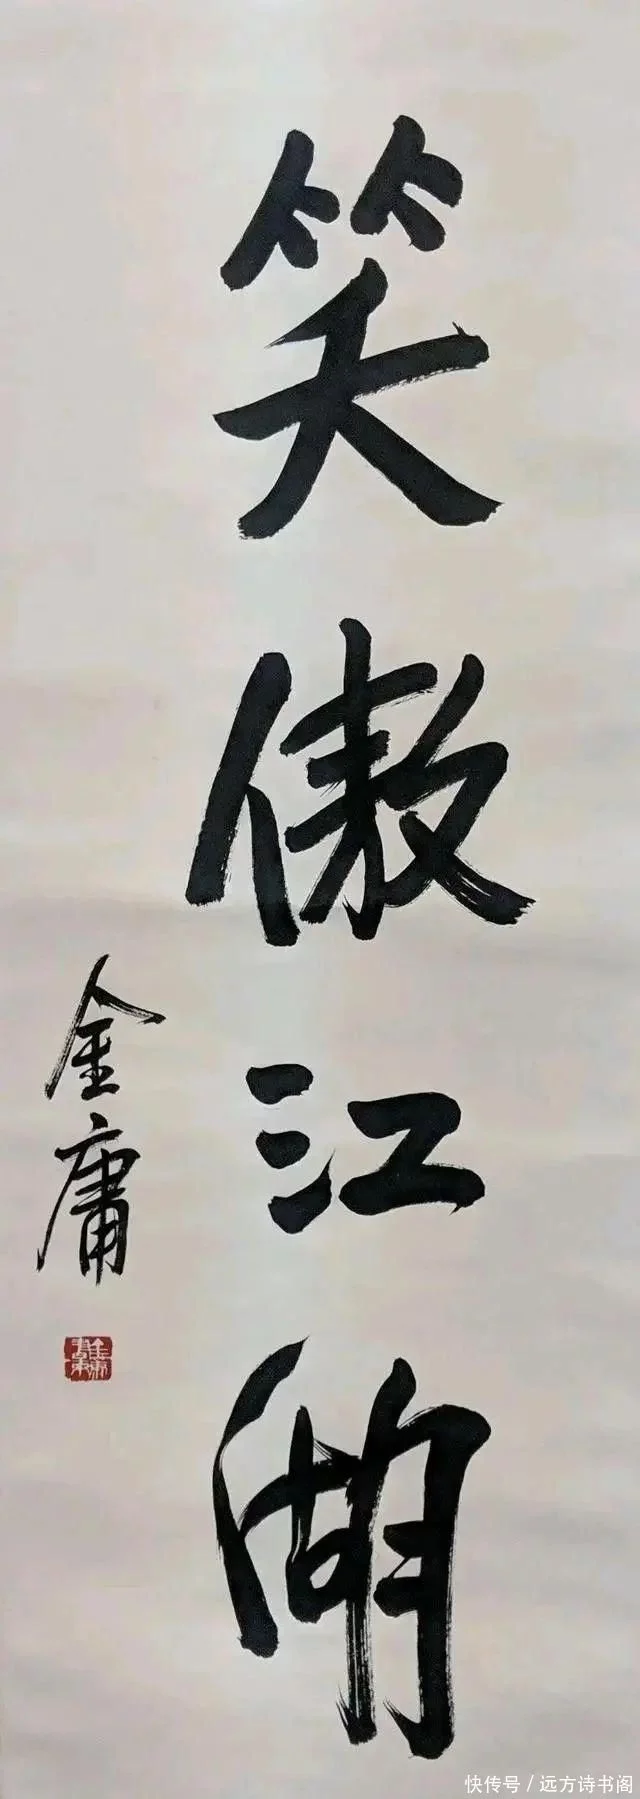 笑傲江湖
金庸
快传号/远方诗书阁